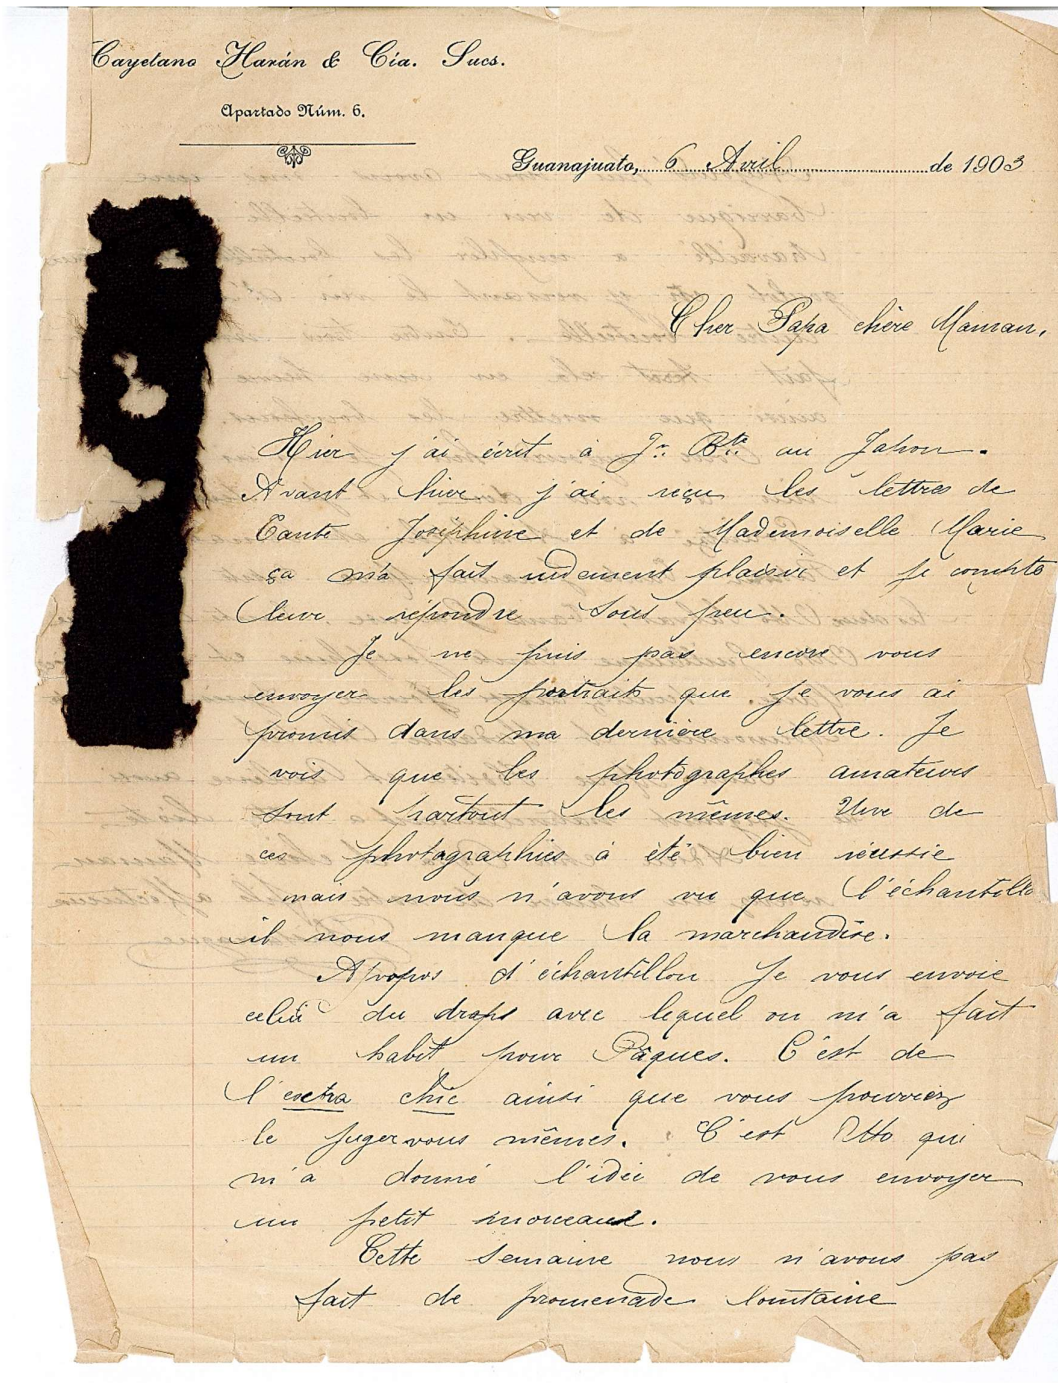 Cayetano Harán & Cía. Sucs.
Apartado Núm. 6.
Guanajuato, 6 Avril de 1903
Cher Papa chère Maman,
Hier j'ai écrit à Jn. Bte. au Japon.
Avant hier j'ai reçu les lettres de
Tante Joséphine et de Mademoiselle Marie
ça m'a fait rudement plaisir et je compte
leur répondre sous peu.
Je ne puis pas encore vous
envoyer les portraits que je vous ai
promis dans ma dernière lettre. Je
vois que les photographes amateurs
sont partout les mêmes. Une de
ces photographies à été bien réussie
mais nous n'avons vu que l'échantillo
il nous manque la marchandise.
Apropos d'échantillon je vous envoie
celui du draps avec lequel on m'a fait
un habit pour Pâques. C'est de
l'extra chic ainsi que vous pourrez
le juger vous mêmes. C'est Otto qui
m'a donné l'idée de vous envoyer
un petit morceau.
Cette semaine nous n'avons pas
fait de promenade lointaine